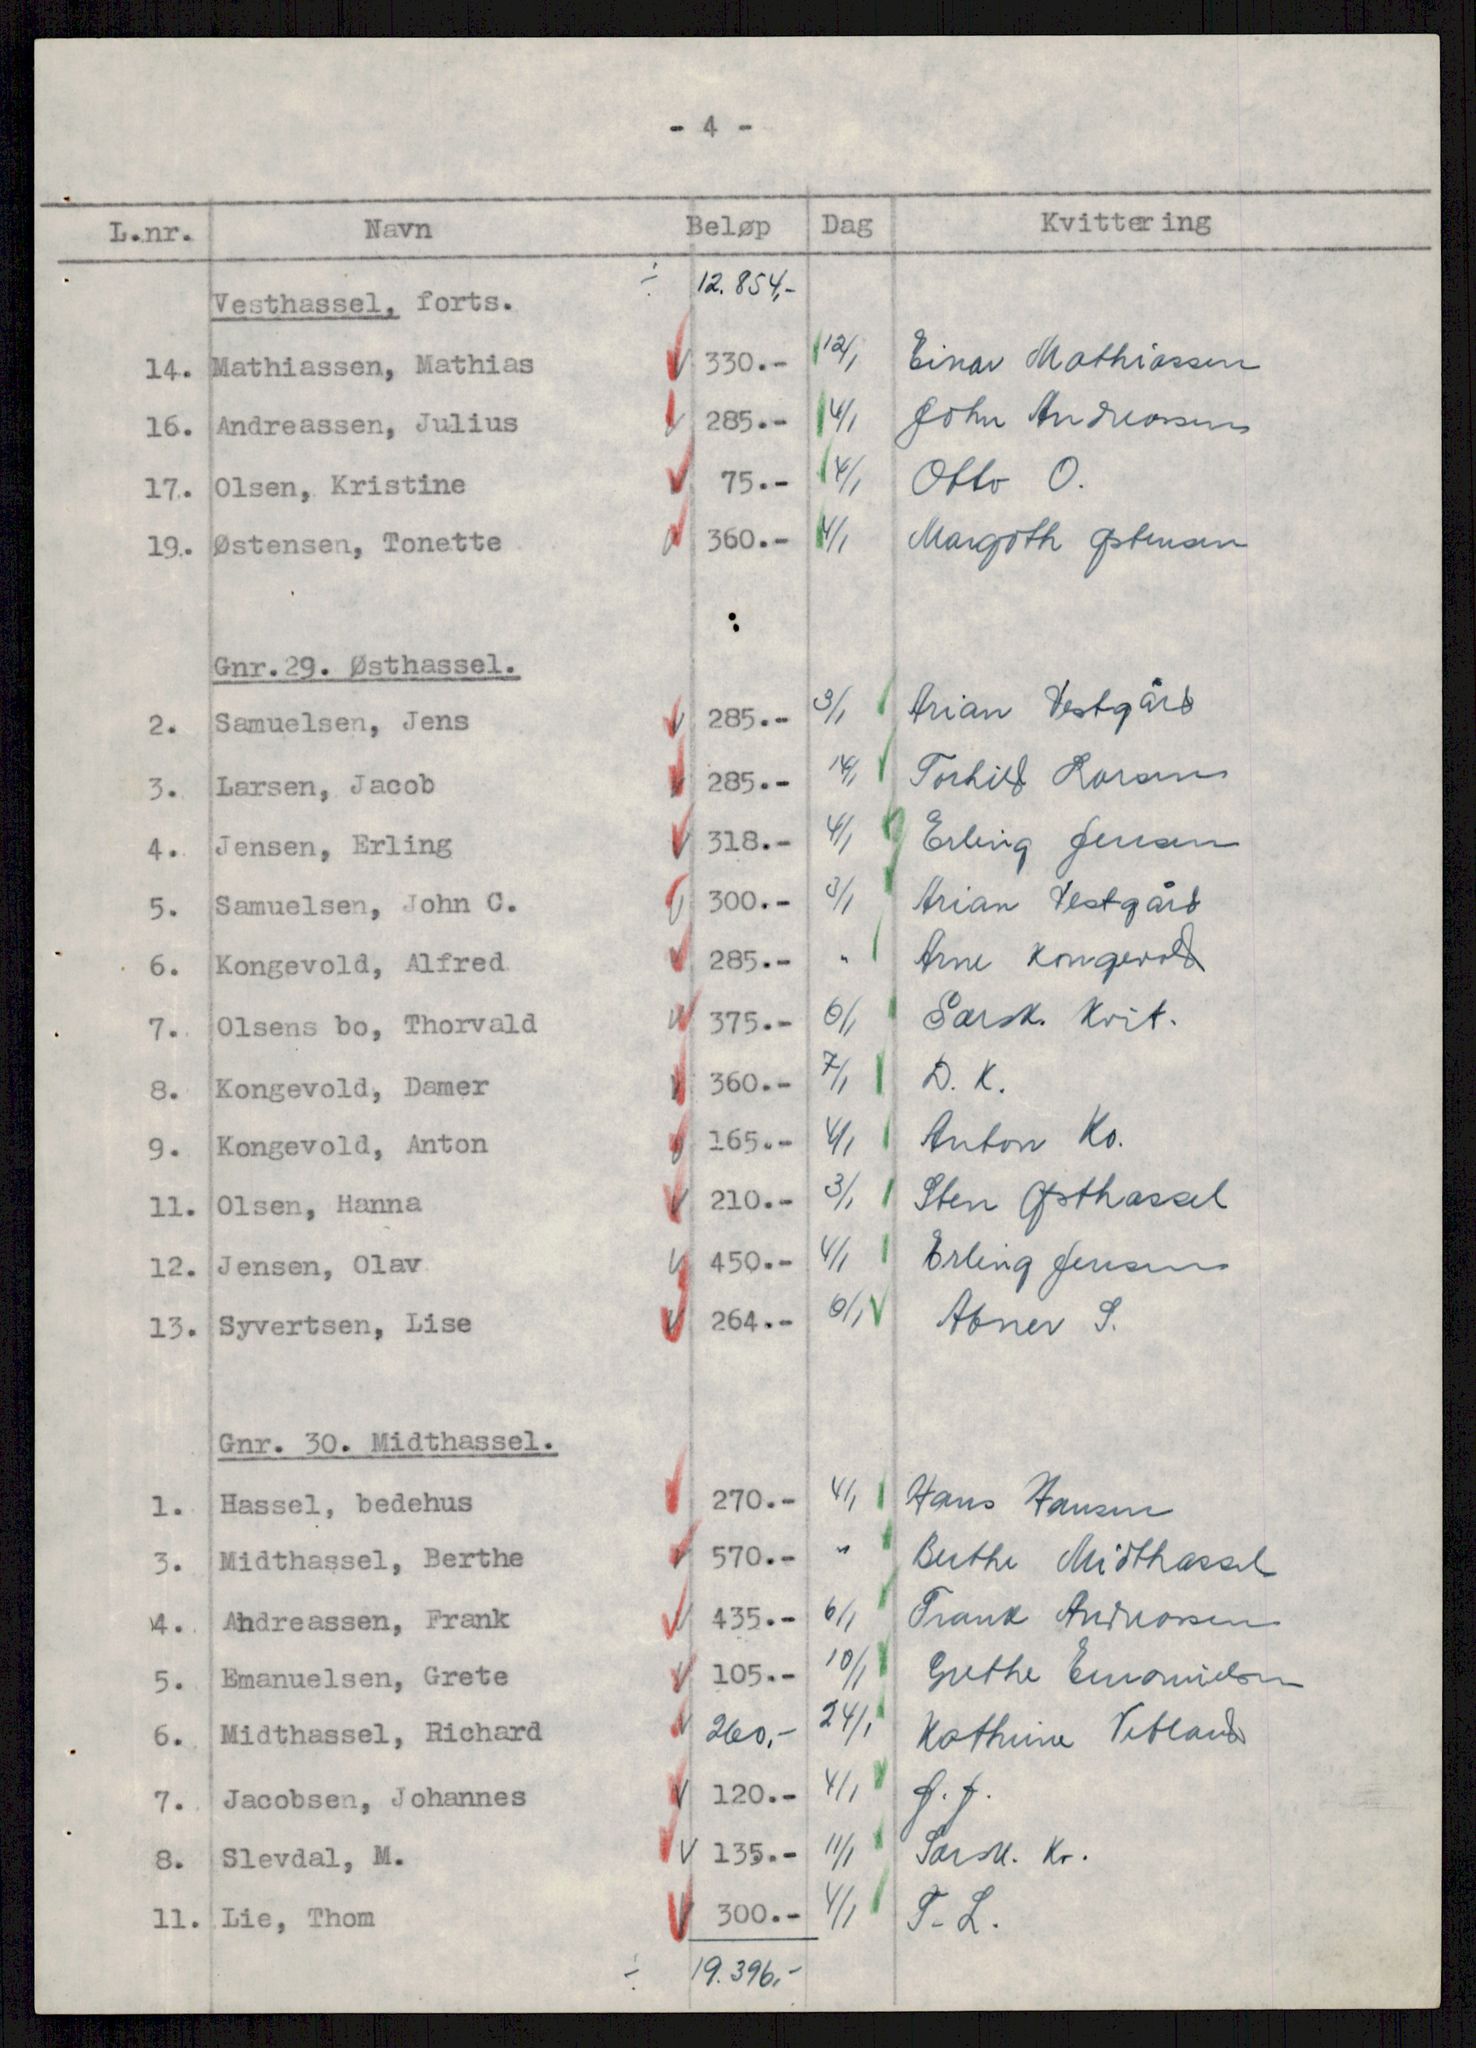 - 4 -
L.nr. Navn Beløp Dag Kvittering
Vesthassel, forts. ÷ 12.854,-
14. Mathiassen, Mathias 330.- 12/1 Einar Mathiassen
16. Andreassen, Julius 285.- 4/1 John Andreassen
17. Olsen, Kristine 75.- 4/1 Otto O.
19. Østensen, Tonette 360.- 4/1 Margoth Østensen
Gnr.29. Østhassel.
2. Samuelsen, Jens 285.- 3/1 Arian Vestgård
3. Larsen, Jacob 285.- 14/1 Torhild Larsen
4. Jensen, Erling 318.- 4/1 Erling Jensen
5. Samuelsen, John C. 300.- 3/1 Arian Vestgård
6. Kongevold, Alfred 285.- " Arne Kongevold
7. Olsens bo, Thorvald 375.- 6/1 Særsk. Kvit.
8. Kongevold, Damer 360.- 7/1 D. K.
9. Kongevold, Anton 165.- 4/1 Anton Ko.
11. Olsen, Hanna 210.- 3/1 Sten Østhassel
12. Jensen, Olav 450.- 4/1 Erling Jensen
13. Syvertsen, Lise 264.- 6/1 Abner S.
Gnr. 30. Midthassel.
1. Hassel, bedehus 270.- 4/1 Hans Hansen
3. Midthassel, Berthe 570.- " Berthe Midthassel
4. Andreassen, Frank 435.- 6/1 Frank Andreassen
5. Emanuelsen, Grete 105.- 10/1 Grethe Emanuelsen
6. Midthassel, Richard 260,- 24/1 Kathrine Vetland
7. Jacobsen, Johannes 120.- 4/1 J. J.
8. Slevdal, M. 135.- 11/1 Særsk. Kv.
11. Lie, Thom 300.- 4/1 T. L.
÷ 19.396,-